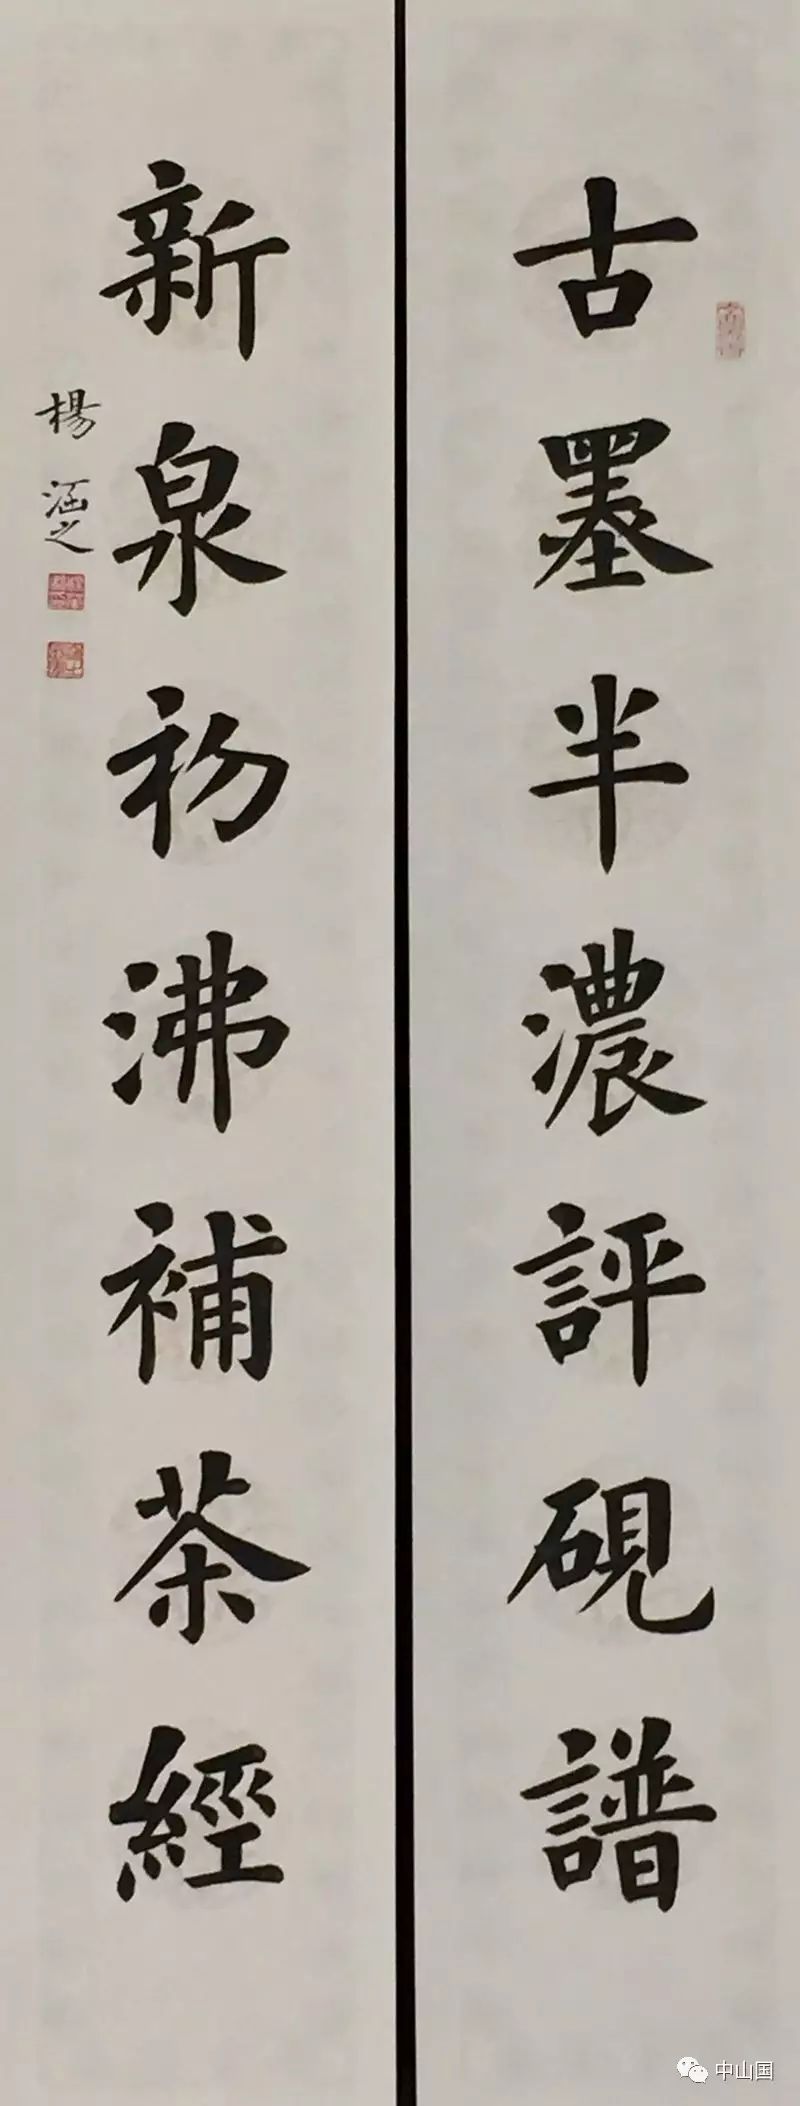 古墨半濃評硯譜
新泉初沸補茶經
楊涵之
中山国